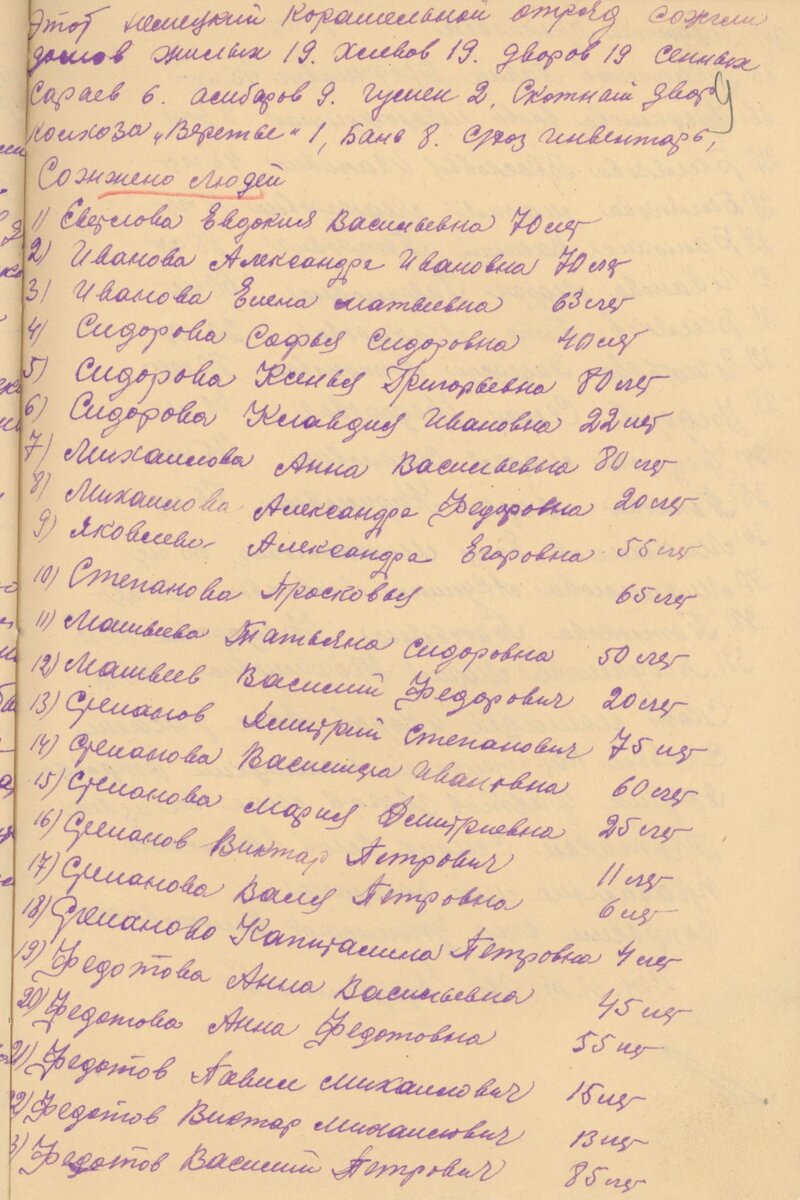 Этот немецкий корательной отряд сожгли
домов жилых 19. хлевов 19. дворов 19 сенных
сараев 6. амбаров 9. гумен 2. Скотный двор
колхоза „Веретье" 1, Бань 8. с/хоз инвентарь,
9
Сожжено людей
1) Светлова Евдокия Васильевна 70 лет
2) Иванова Александра Ивановна 70 лет
3) Иванова Елена матвеевна 63 лет
4) Сидорова Софья Сидоровна 40 лет
5) Сидорова Ксенья Григорьевна 80 лет
6) Сидорова Клавдия Ивановна 22 лет
7) Михаилова Анна Васильевна 80 лет
8) Михаилова Александра Федоровна 20 лет
9) Яковлева Александра Егоровна 55 лет
10) Степанова Просковья 65 лет
11) Матвеева Татьяна Сидоровна 50 лет
12) Матвеев Василий Федорович 20 лет
13) Степанов Дмитрий Степанович 75 лет
14) Степанова Василиса Ивановна 60 лет
15) Степанова Мария Дмитриевна 25 лет
16) Степанов Виктар Петрович 11 лет
17) Степанова Валя Петровна 6 лет
18) Степаново Капиталина Петровна 4 лет
19) Федотова Анна Васильевна 45 лет
20) Федотова Анна Федотовна 55 лет
21) Федотов Павил михаилович 15 лет
22) Федотов Виктар михаилович 13 лет
3) Федотов Василий Петрович 85 лет